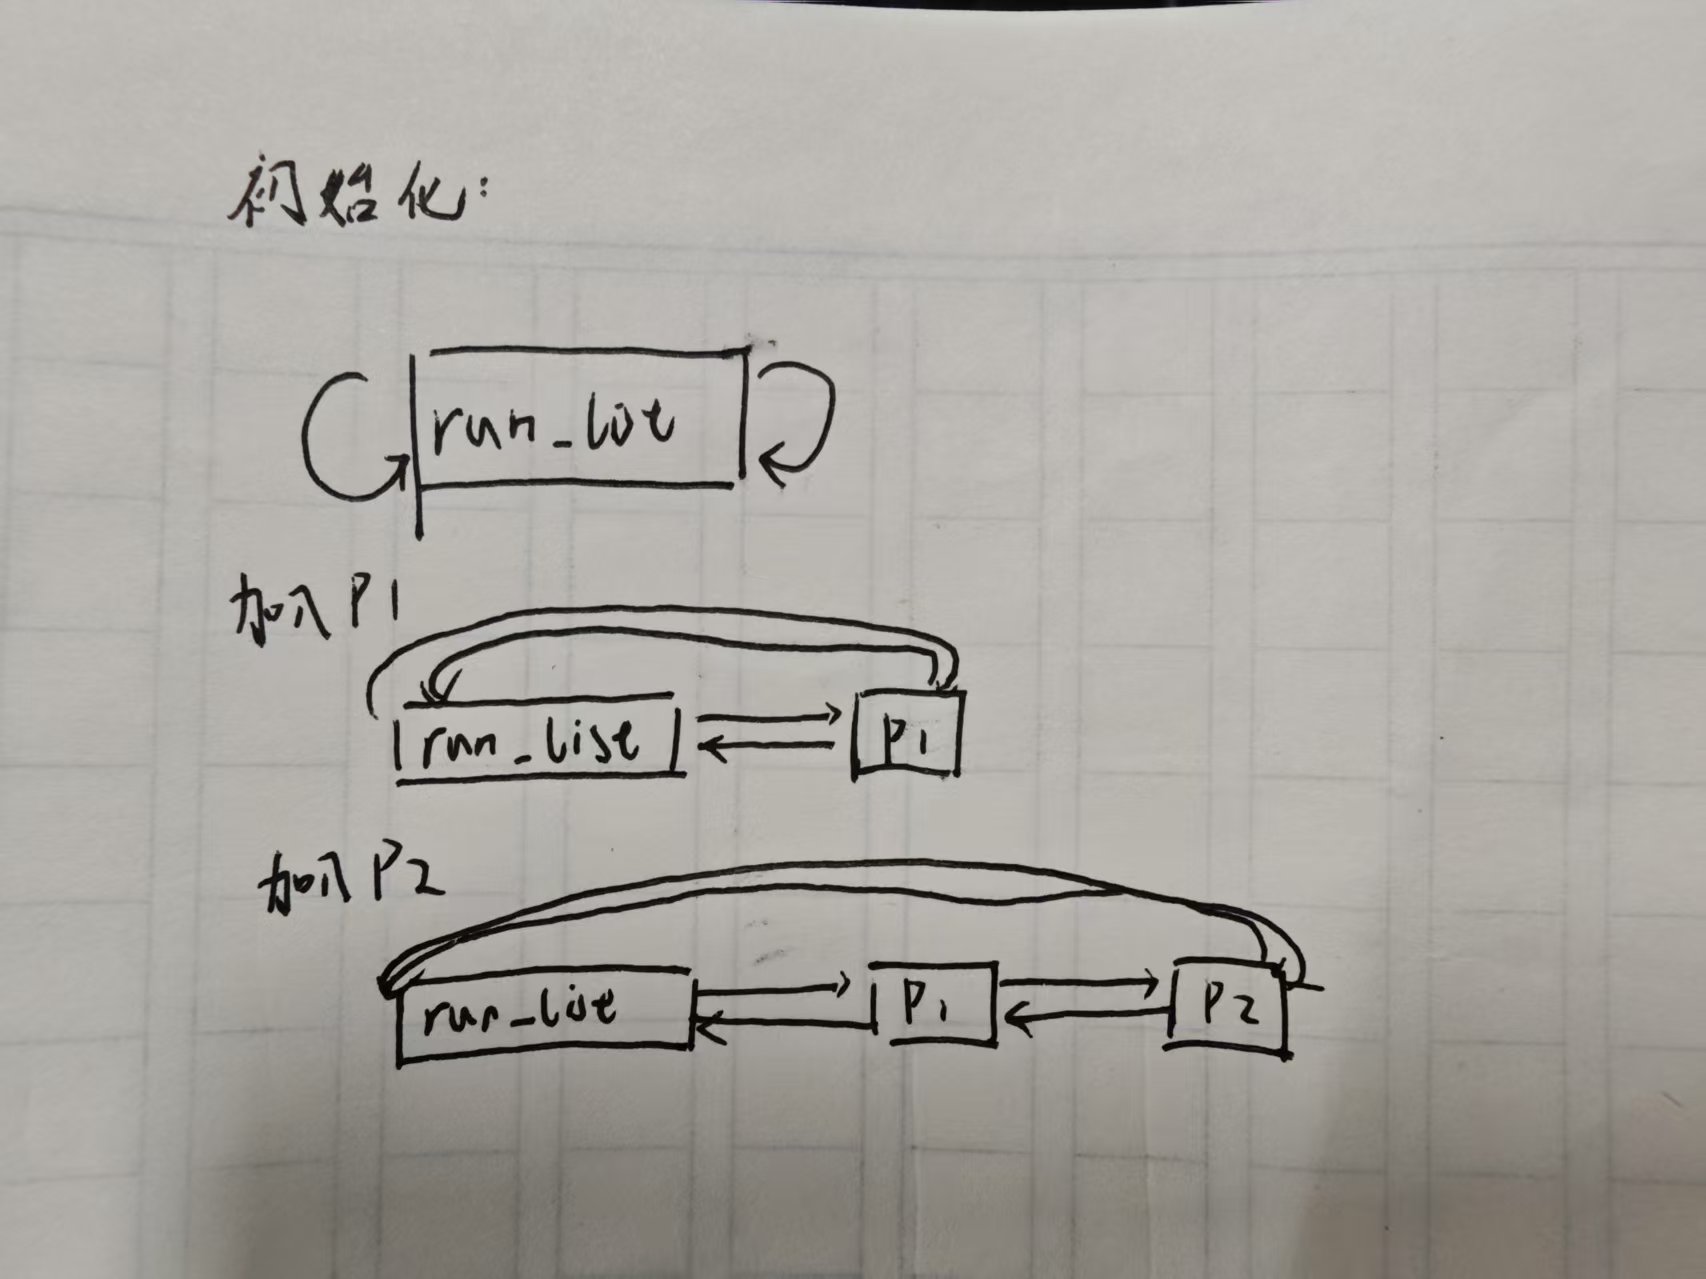 初始化:
run_list
加入 P1
run_list P1
加入 P2
run_list P1 P2